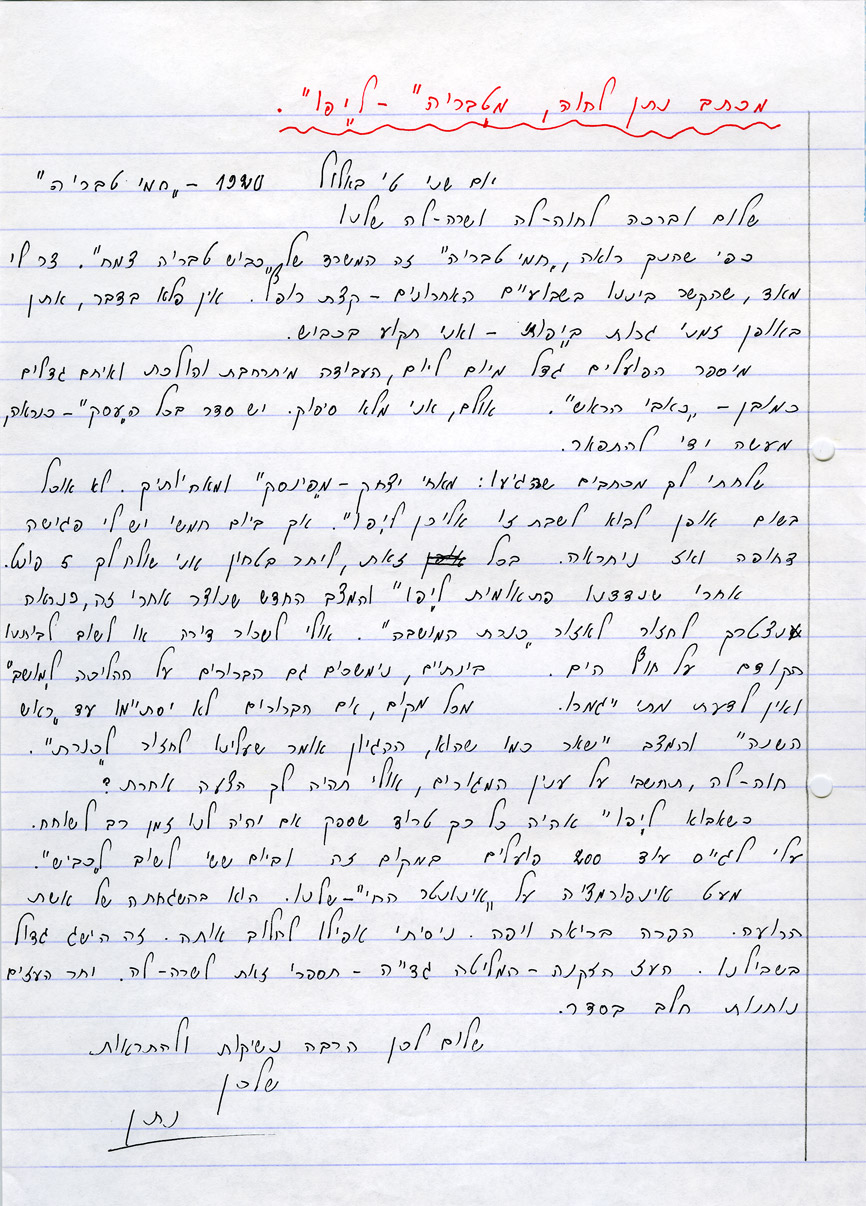 מכתב נתן לחוה, מטבריה" – ל"יפו".
יום שני ט' באלול 1920 – "חמי טבריה"
שלום וברכה לחוה-לה ושרה-לה שלנו
כפי שהנך רואה, "חמי טבריה" זה המשרד של "כביש טבריה צמח". צר לי
מאד, שהקשר ביננו בשבועיים האחרונים – קצת רופף. אין פלא בדבר, אתן
באופן זמני גרות ב"יפו" – ואני תקוע בכביש.
מיספר הפועלים גדל מיום ליום, העבודה מיתרחבת והולכת ואיתם גדלים
כמובן – "כאבי הראש". אולם, אני מלא סיפוק. יש סדר בכל ה"עסק" – כנראה,
מעשה ידי להתפאר.
שלחתי לך מכתבים שהגיעו: מאחי יצחק – מ"פינסק" ומאחיותיך. לא אוכל
בשום אופן לבוא לשבת זו אליכן ל"יפו". אך ביום חמשי יש לי פגישה
דחופה ואז ניתראה. בכל זאת, ליתר בטחון אני שולח לך 5 פונט.
אחרי שנדדנו פתאומית ל"יפו" והמצב החדש שנוצר אחרי זה, כנראה
נצטרך לחזור לאזור "כנרת המושבה". אולי לשכור דירה או לשוב לביתנו
הקודם על חוף הים. בינתיים, נימשכים גם הברורים על ההליכה ל"מושב"
ואין לדעת מתי ייגמרו. מכל מקום, אם הברורים לא יסתיימו עד "ראש
השנה" והמצב יישאר כמו שהוא, ההגיון אומר שעלינו לחזור ל"כנרת".
חוה-לה, תחשבי על ענין המגורים, אולי תהיה לך הצעה אחרת?
כשאבוא ל"יפו" אהיה כל כך טרוד שספק אם יהיה לנו זמן רב לשוחח.
עלי לגייס עוד 200 פועלים במקום זה וביום ששי לשוב ל"כביש".
מעט אינפורמציה על "אינונטר החי" – שלנו. הוא בהשגחתה של אשת
הרועה. הפרה בריאה ויפה. ניסיתי אפילו לחלוב אותה. זה הישג גדול
בשבילנו. העז הזקנה – המליטה גדייה – תספרי זאת לשרה-לה. יתר העזים
נותנות חלב בסדר.
שלום לכן הרבה נשיקות ולהתראות
שלכן
נתן